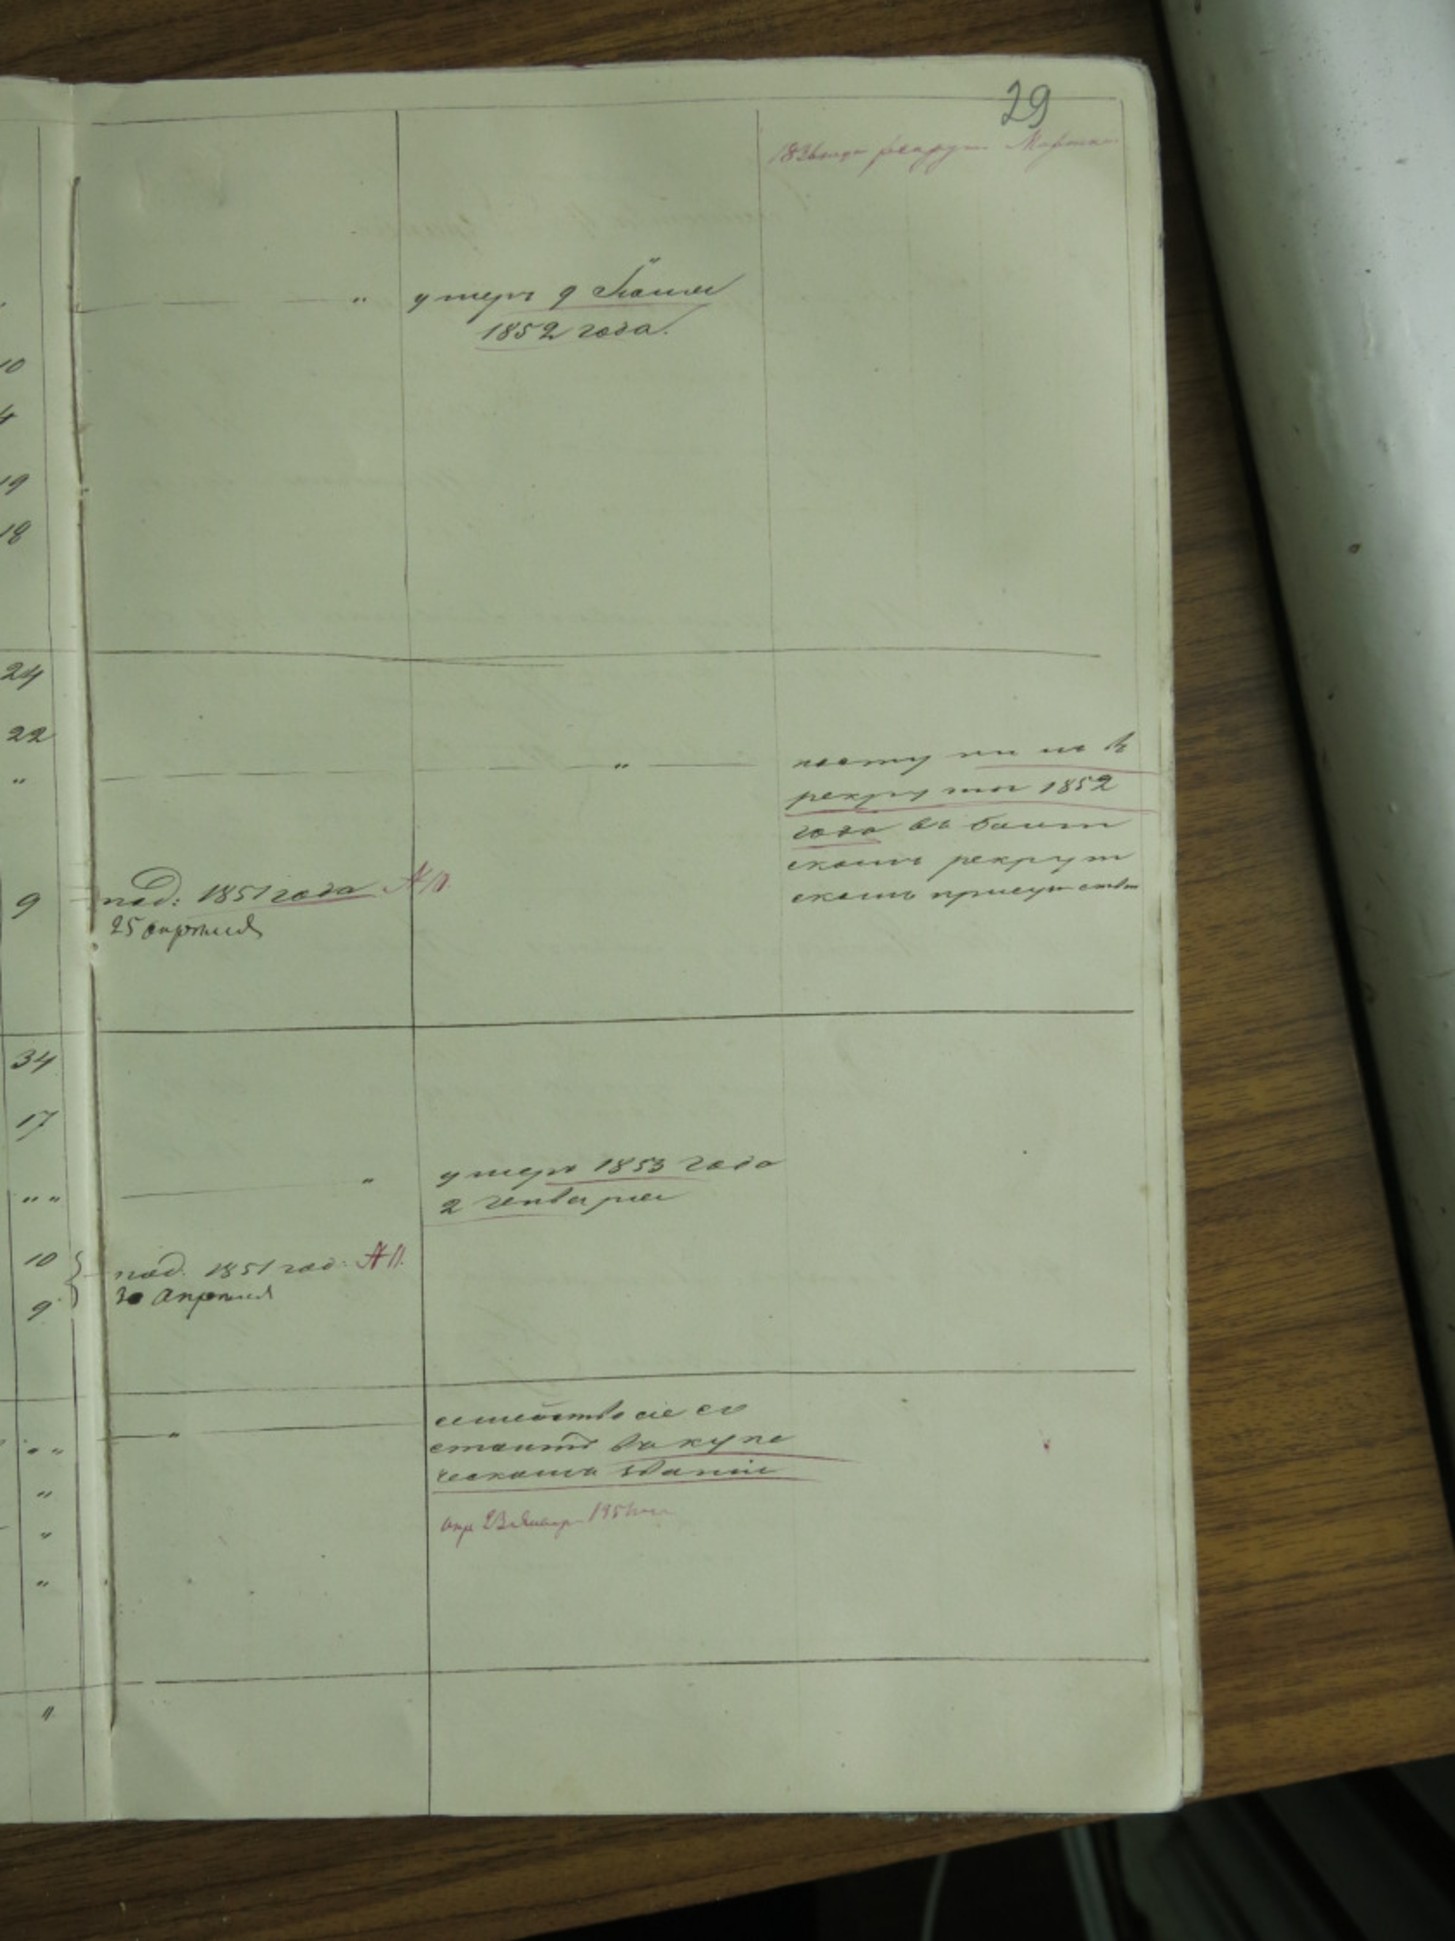 29
рекрут
10
4
19
18
умеръ 9
1852 года.
24
22
"
поступилъ въ
рекруты 1852
года въ
скомъ рекрут
скомъ присутствіи
9
под: 1851 года А П.
25 апрѣля
34
17
" "
умеръ 1853 года
2 генваря
10
9
под. 1851 год: А П.
30 Апрѣля
семейство сіе со
стоитъ въ купе
ческомъ званіи
" "
"
"
"
"